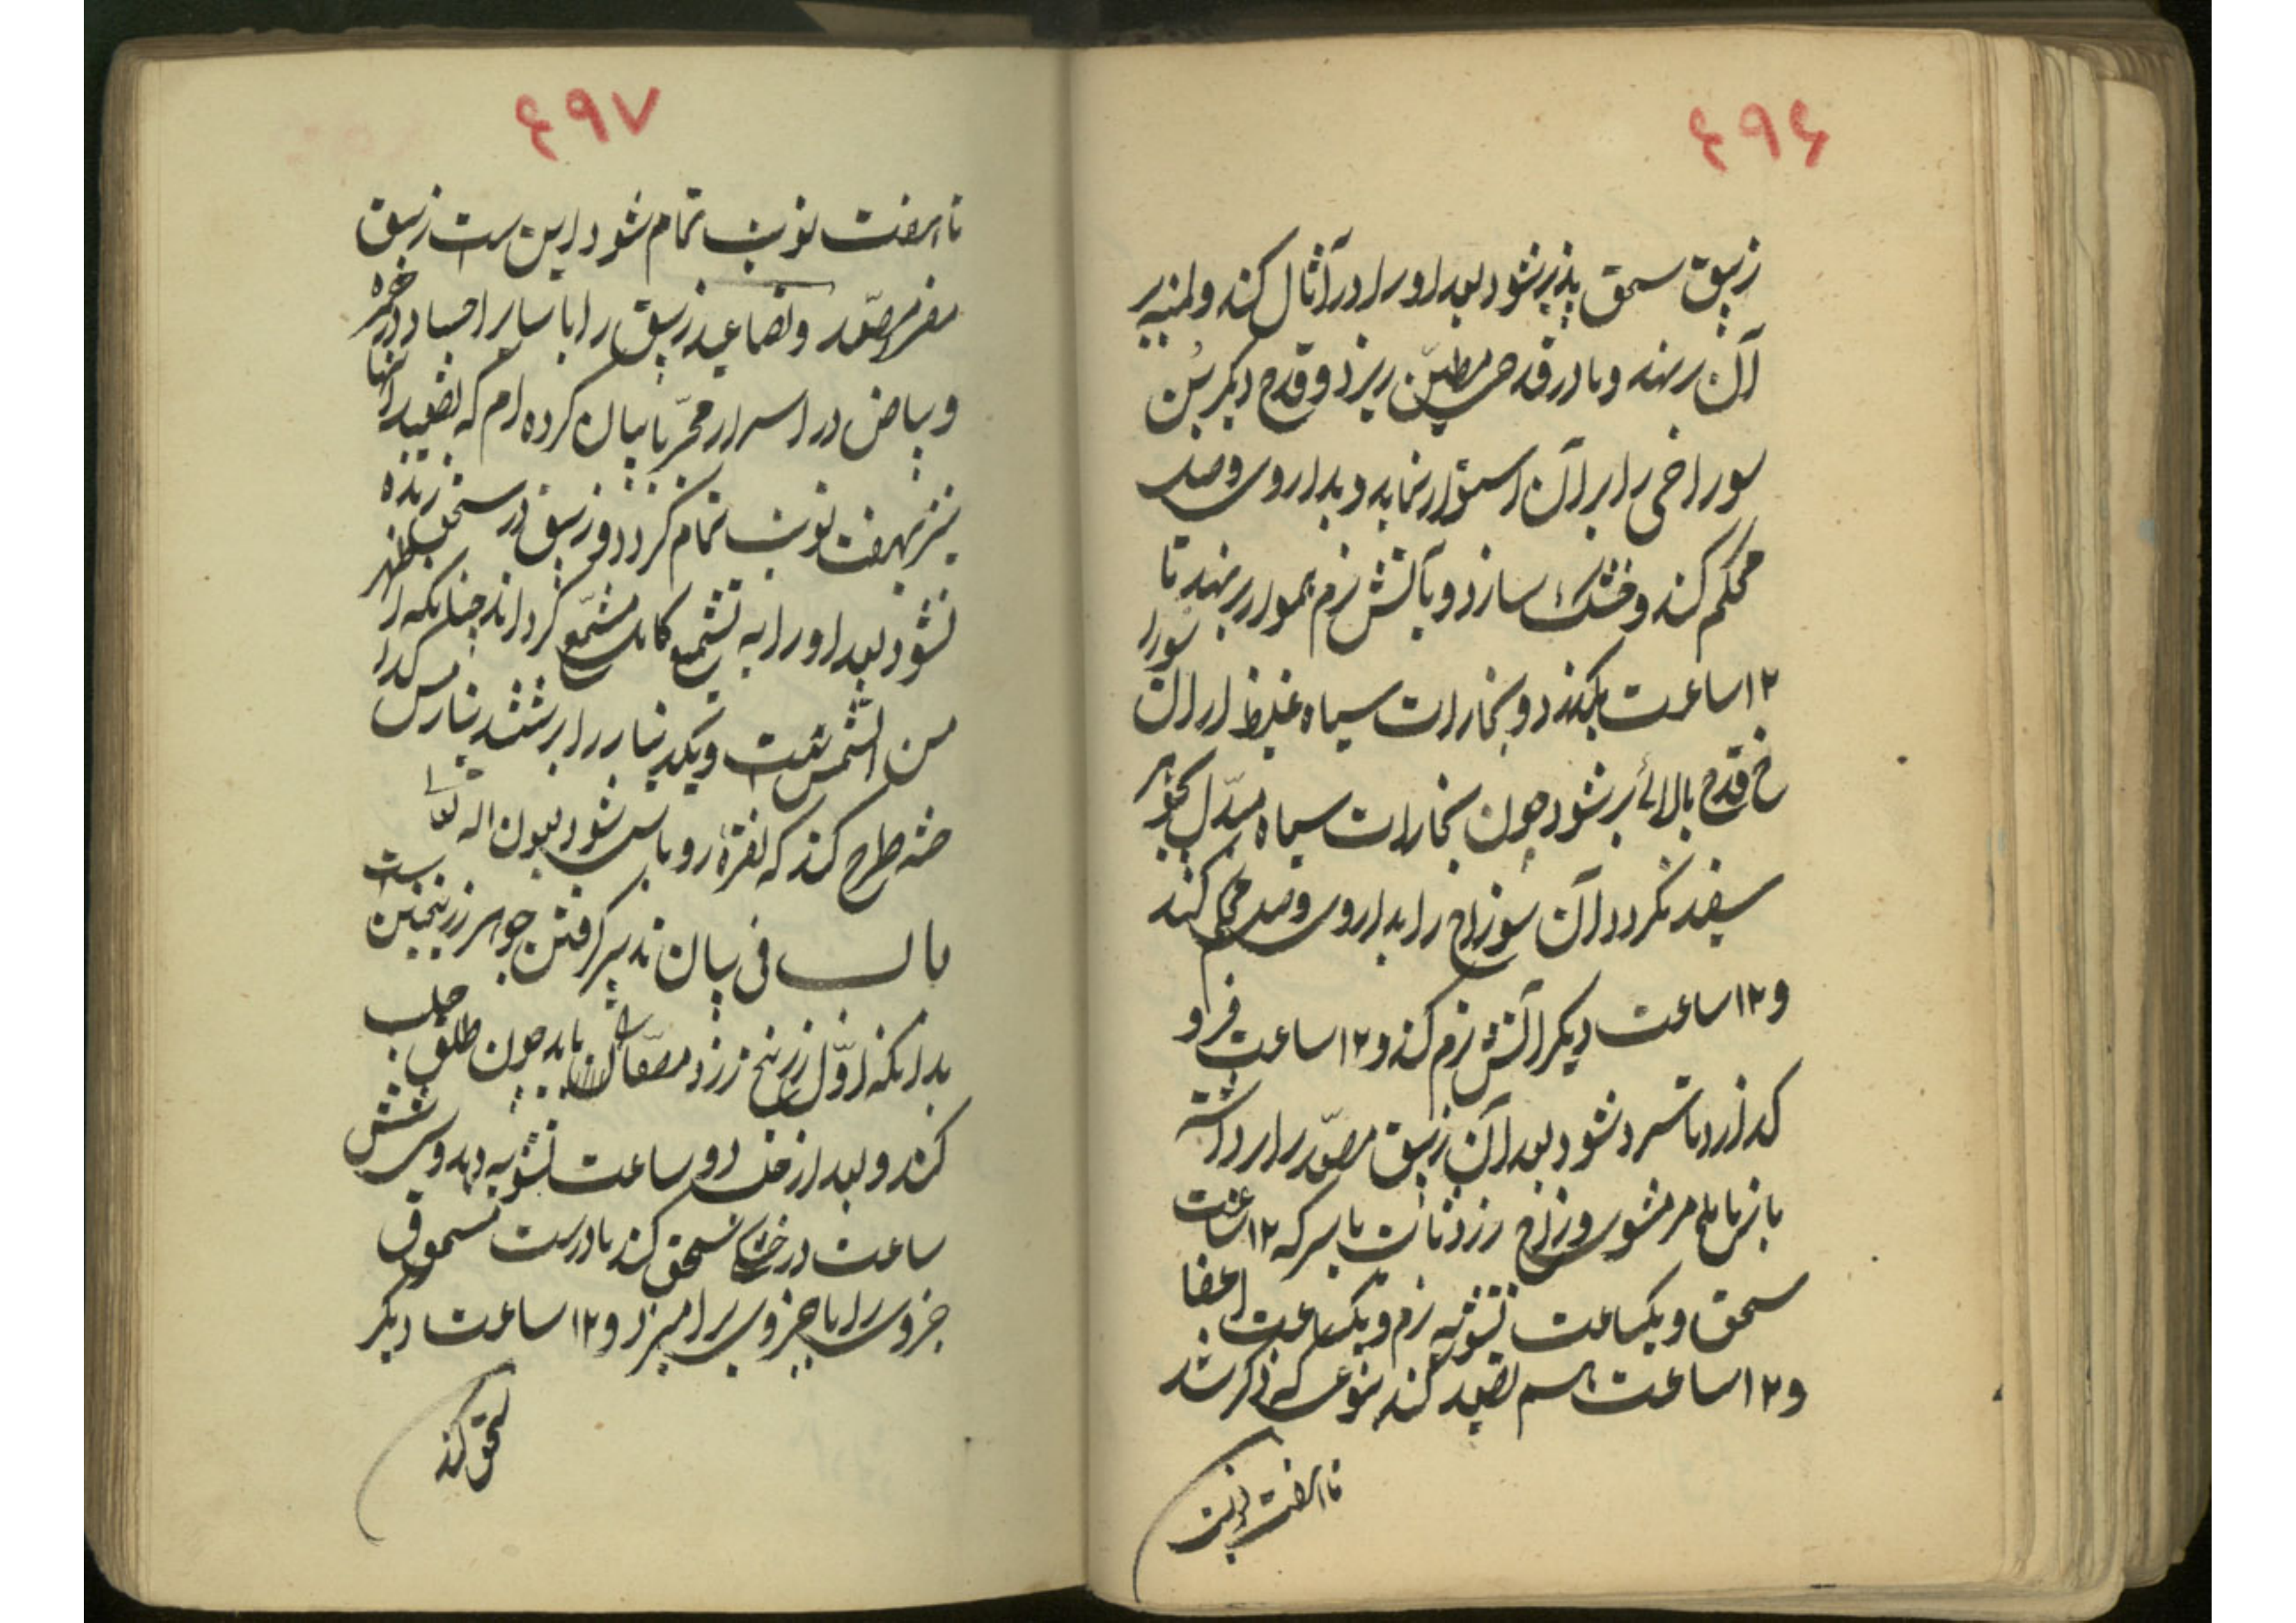 ۴۹۶
زیبق سحق پذیر شود بعد او را در آثال کند و لمنیه بر
آن نهد و یا در قدح مطین ریزد و قدح دیگر بن
سوراخی را بر آن استوار نماید و بداروی وصل
محکم کند و خشک سازد و بآتش نرم هموار بر نهد تا
۱۲ ساعت بگذرد و بخارات سیاه غلیظ از آن سورا
خ قدح بالائی بر شود چون بخارات سیاه مبدل بجوهر
سفید گردد آن سوراخ را بداروی وصل محکم کند
و ۱۲ ساعت دیگر آتش نرم کند و ۱۲ ساعت فرو
گذارد تا سرد شود بعد آن زیبق مصعد را برداشته
باز با ملح مر مشوی و زاج زرد ثابت با سرکه ۱۲ ساعت
سحق و یکساعت تشویه نرم و یکساعت
و ۱۲ ساعت هم تصعید کند بنوعی که ذکر شد
تا هفت نوبت
۴۹۷
تا هفت نوبت تمام شود این است زیبق
مصعد و تصاعید زیبق را با سایر اجساد در حمره
و بیاض در اسرار مجربا بیان کرده ام که تصعید آنها
نیز بهفت نوبت تمام گردد و زیبق در سحق زنده
نشود بعد او را به تشمیع کامل مشمع گرداند چنانکه اظهر
من الشمس است و یکدینار را بر شصت دینار مس گدا
خته طرح کند که نقره روباس شود بعون اله تعا
باب فی بیان تدبیر گرفتن جوهر زرنیخین است
بدانکه اول زرنیخ زرد مصفا باید چون طلق حلب
کند و بعد از خشک دو ساعت تشویه دهد و شش
ساعت در خشکی سحق کند با درست مسحوق
جزوی را با جزوی بر امیزد و ۱۲ ساعت دیگر
سحق کند